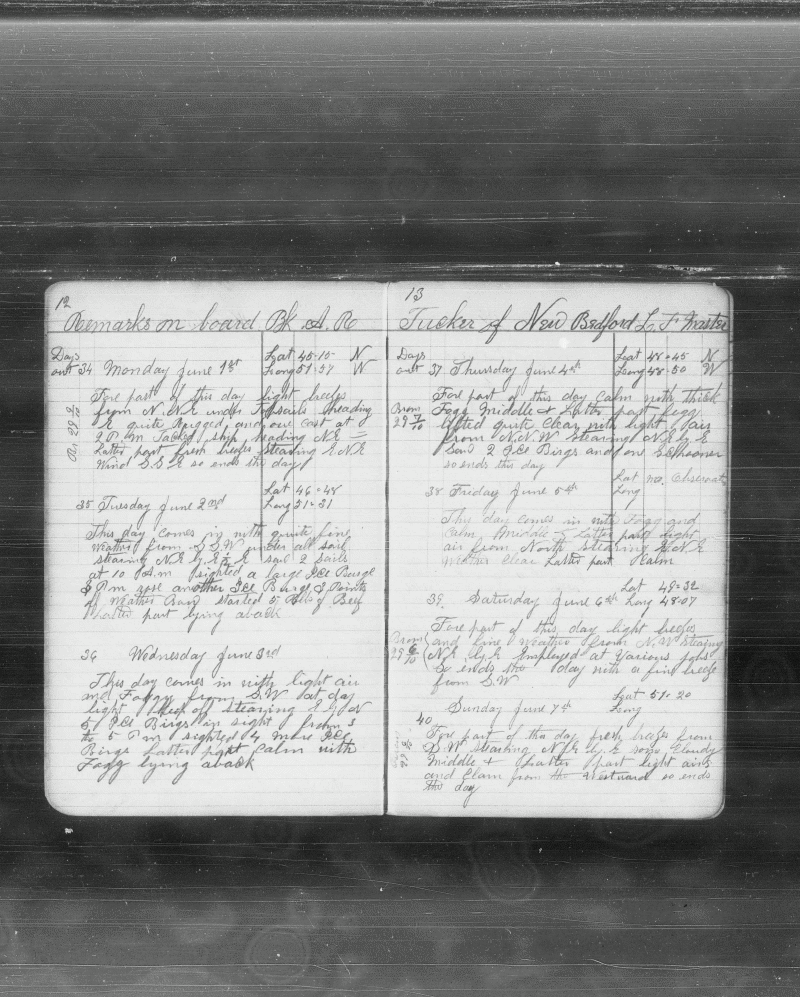 12
Remarks on board Bk. A. R
Days out 34 Monday June 1st Lat 45-15 N
Long 51-57 W
Fore part of this day light breeze
from N.N.E under Topsails heading
E quite Rugged and one east at
2 P.m Tacked ship heading NE
Latter part fresh breeze steering E.N.E
Wind S.S.E so ends the day
35 Tuesday June 2nd Lat 46-48
Long 51-31
This day comes in with quite fine
Weather from S.W under all sail
stearing N.E by E 1/2 E said 2 sails
at 10 A.m sighted a large Ice Burge
P.m rose another Ice Burge 2 Points
of Weather Bow started 5 Bbls of Beef
Latter part lying aback
36 Wednesday June 3rd
This day comes in with light air
and Foggy from S.W at day
light Keep off stearing E by N
5 Ice Birgs in sight from 3
to 5 P.m sighted 4 more Ice
Birgs Latter part Calm with
Fogg lying aback
13
Tucker of New Bedford L. F Master
Days out 37 Thursday June 4th Lat 48-45 N
Long 48-50 W
Fore part of this day Calm with thick
Fogg Middle & Latter part fogg
lifted quite Clear with light air
from N.N.W stearing N.E by E
Saw 2 Ice Birgs and one Schooner
so ends this day
Barom 29 7/10
38 Friday June 5th Lat no. Observat
Long
This day comes in with Fogg and
Calm Middle & Latter part light
air from North stearing E.N.E
Weather Clear Latter part Calm
39. Saturday June 6th Lat 49-32
Long 48-07
Fore part of this day light breeze
and fine Weather from N.W stearing
N.E by E Employed at Various jobs
So ends the day with a fine breeze
from S.W
Barom 29 6/10
40 Sunday June 7th Lat 51-20
Long
Fore part of this day fresh breeze from
S.W stearing N.E by E some Cloudy
Middle & Latter part light airs
and Calm from the Westward so ends
the day